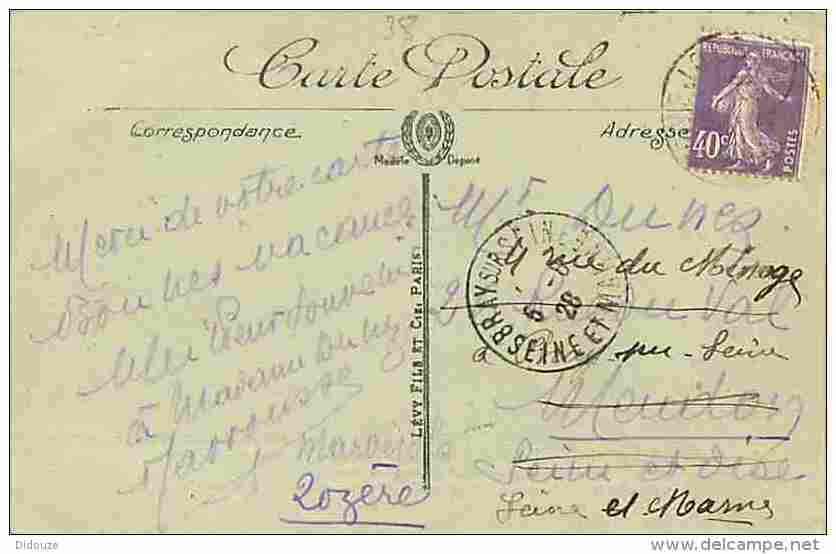 38
Carte Postale
Correspondance
Adresse
Modèle Déposé
REPUBLIQUE FRANÇAISE
40c
POSTES
Merci de votre carte
Bonnes vacances
Meilleur souvenir
à Madame Dunes
Marvejols
Lozère
LÉVY FILS ET CIE, PARIS
BRAY SUR SEINE
6 - 8
28
SEINE ET M
Mr Dunes
4 rue du Minage
Val
à sur-Seine
Meudon
Seine et Oise
Seine et Marne
Didouze
www.delcampe.net